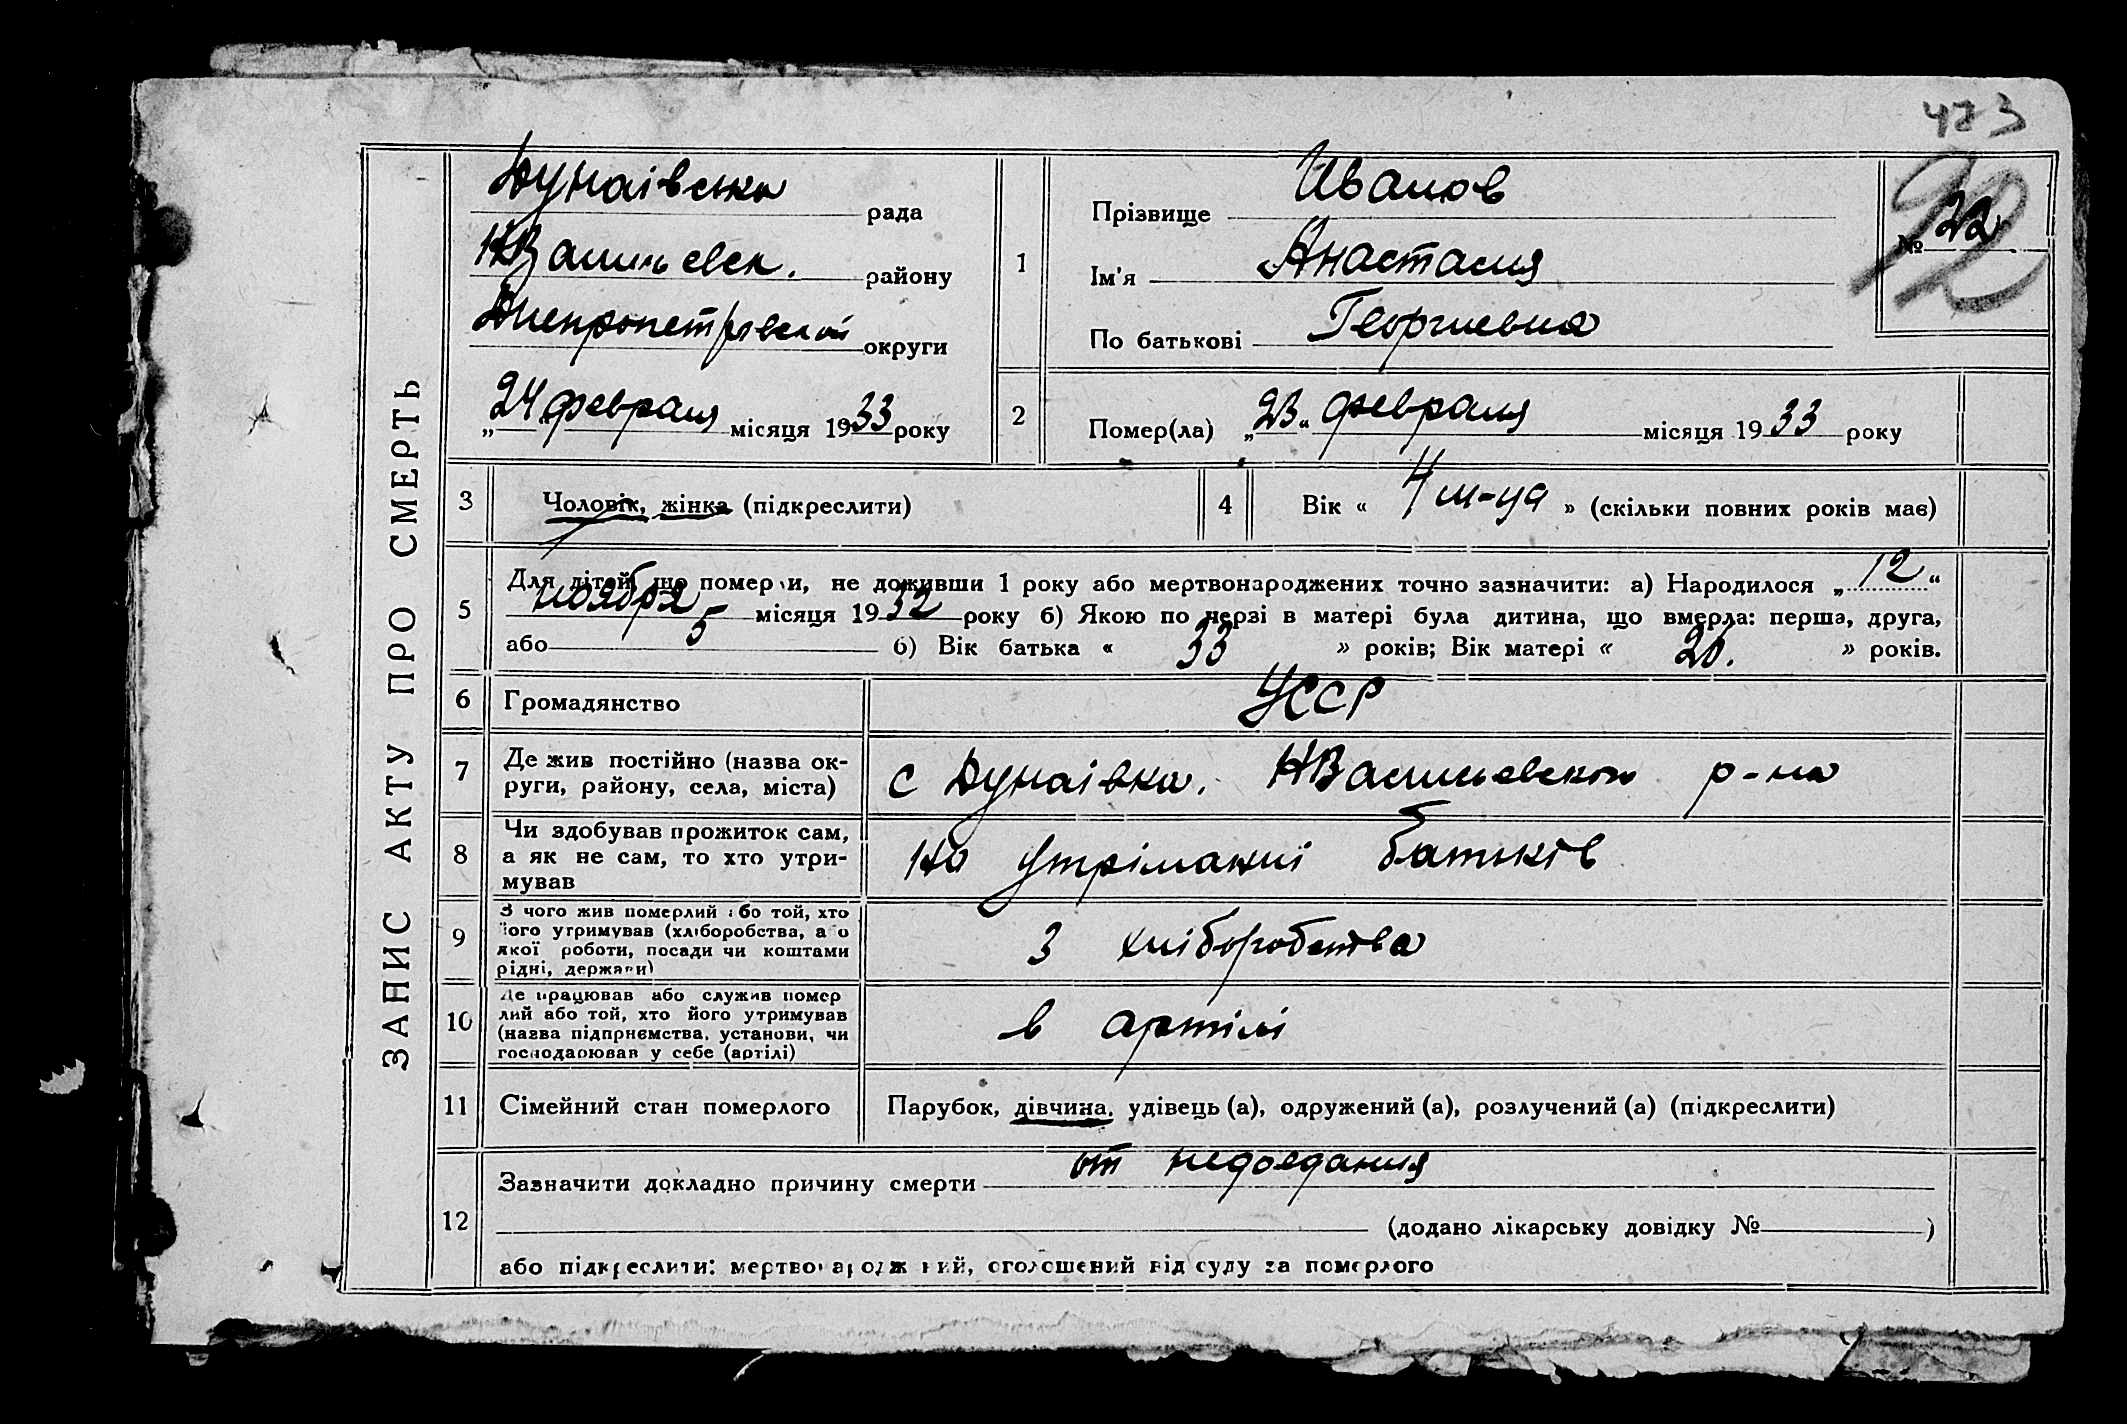 473
ЗАПИС АКТУ ПРО СМЕРТЬ
Дунаівська рада
НВасильевск. району
Днепропетровской округи
„24" февраля місяця 1933 року
1
Прізвище Иванов
Ім'я Анастасия
По батькові Георгиевна
№ 22
92
2
Помер(ла) „23" февраля місяця 1933 року
3
Чоловік, жінка (підкреслити)
4
Вік « 4 м-ца » (скільки повних років має)
5
Для дітей, що померли, не доживши 1 року або мертвонароджених точно зазначити: а) Народилося „12"
ноября місяця 1932 року б) Якою по черзі в матері була дитина, що вмерла: перша, друга,
або 5 б) Вік батька « 33 » років; Вік матері « 26. » років.
6
Громадянство
УССР
7
Де жив постійно (назва ок-
руги, району, села, міста)
с Дунаівка. НВасильевского р-на
8
Чи здобував прожиток сам,
а як не сам, то хто утри-
мував
на утріманні батьків
9
З чого жив померлий або той, хто
його утримував (хліборобства, а о
якої роботи, посади чи коштами
рідні, держави)
З хліборобства
10
Де працював або служив помер
лий або той, хто його утримував
(назва підприємства, установи, чи
господарював у себе (артілі)
в артілі
11
Сімейний стан померлого
Парубок, дівчина, удівець (а), одружений (а), розлучений (а) (підкреслити)
12
Зазначити докладно причину смерти от недоедания
(додано лікарську довідку № )
або підкреслити: мертвонароджений, оголошений від суду за померлого